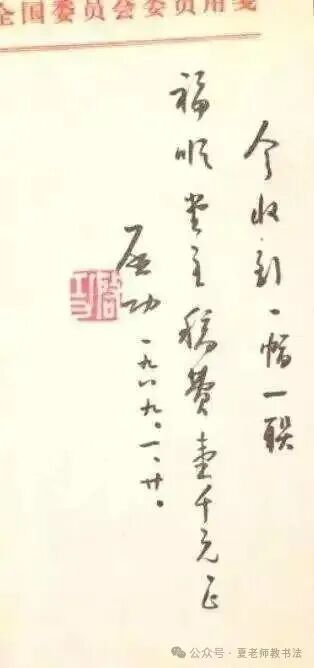 全国委员会委员用笺
今收到一幅一联
福顺堂主稿费壹千元正
启功一九八九.一.廿.
启功
公众号·夏老师教书法